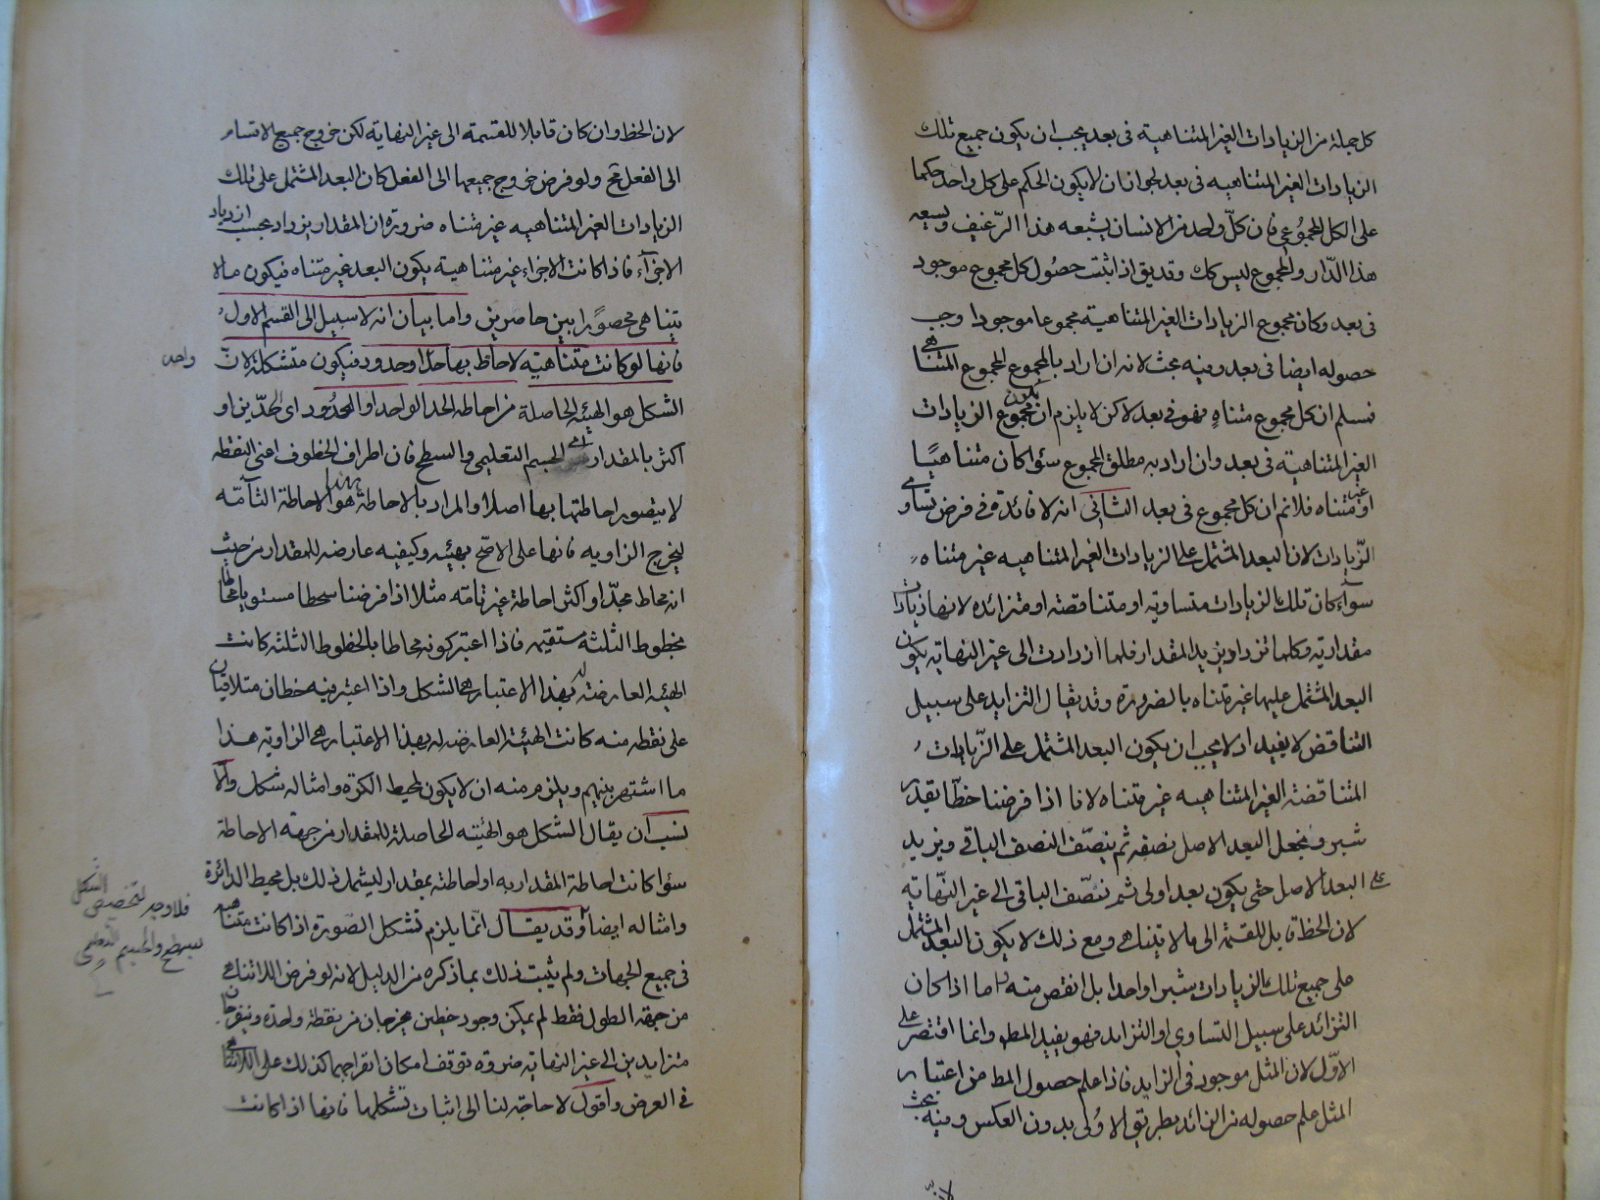 كل جملة من الزيادات الغير المتناهية في بعد يجب ان يكون جميع تلك
الزيادات الغير المتناهيه في بعد لجواز ان لا يكون الحكم على كل واحد حكما
على الكل المجموعي فان كلّ واحد من الانسان يشبعه هذا الرّغيف ويسعه
هذا الدّار والمجموع ليس كك وقد يق اذا ثبت حصُول كل مجموع موجود
في بعد وكان مجموع الزيادات الغير المتناهية مجموعا موجودا وجب
حصوله ايضا في بعد وفيه بحث لانه ان اراد بالمجموع المجموع المتناهي
فسلم ان كل مجموع متناهٍ فهو في بعد لاكن لا يلزم ان يكون مجموع الزيادات
الغير المتناهية في بعد وان اراد به مطلق المجموع سواء كان متناهيًا
او غير متناه فلا نم ان كل مجموع في بعد الثاني انه لا فائدة في فرض تساوي
الزّيادات لان البعد المشتمل على الزيادات الغير المتناهيه غير متناه
سواء كان تلك الزيادات متساوية او متناقصة او متزائده لانها زيادات
مقدارية وكلما تزداد يزيد المقدار فلما ازدادت الى غير النهاية يكون
البعد المشتمل عليها غير متناه بالضرورة وقد يقال التزايد على سبيل
التناقص لا يفيد اذ لا يجب ان يكون البعد المشتمل على الزّيادات
المتناقصة الغير المتناهيه غير متناه لانا اذا فرضنا خطّا بقدر
شبر ونجعل البعد الاصل نصفه ثم ينصّف النصف الباقي ويزيد
على البعد الاصل حتى يكون بعد اولى ثم ننصّف الباقي الى غير النّهاية
لان الخط قابل للقسمة الى ما لا يتناهى ومع ذلك لا يكون البعد المشتمل
على جميع تلك الزيادات شبرا واحدا بل انقص منه واما اذا كان
التزائد على سبيل التساوي او التزايد فهو يفيد المط وانما اقتصر على
الاوّل لان المثل موجود في الزايد فاذا علم حصول المط من اعتبار
المثل علم حصوله من الزائد بطريق الاولى بدون العكس وفيه بحث
لانّ
لان الخط وان كان قابلا للقسمة الى غير النهاية لكن خروج جميع الاقسام
الى الفعل مح ولو فرض خروج جميعها الى الفعل كان البعد المشتمل على تلك
الزيادات الغير المتناهيه غير متناه ضرورة ان المقدار يزداد بحسب ازدياد
الاجزآء فاذا كانت الاجزاء غير متناهية يكون البعد غير متناه فيكون ما لا
يتناهى محصورًا بين حاصرين واما بيان انه لا سبيل الى القسم الاول
فانها لو كانت متناهية لاحاط بها حدّ او حدود فيكون متشكلة لانّ
واحد
الشكل هو الهيئه الحاصلة من احاطه الحد الواحد او الحدُود اى الحدّين او
اكثر بالمقدار الجسم التعليمي والسطح فان اطراف الخطوط اعنى النقطه
لا يتصور احاطتها بها اصلا والمراد بالاحاطة هنا هو الاحاطة التآمّه
ليخرج الزاويه فانها على الاصّح بهيئه وكيفيه عارضه للمقدار من حيث
انه محاط بحدّ او اكثر احاطة غير تامّه مثلا اذا فرضنا سطحا مستويا محاطا
بخطوط الثلثه مستقيمه فاذا اعتبر كونه محاطا بالخطوط الثلثه كانت
الهيئه العارضة له بهذا الاعتبار هى الشكل واذا اعتبر فيه خطان متلاقيان
على نقطه منه كانت الهيئة العارضه له بهذا الاعتبار هى الزاويه هذا
ما اشتهر بينهم ويلزم منه ان لا يكون لمحيط الكرة وامثاله شكل والا
نسب ان يقال الشكل هو الهيئته الحاصلة للمقدار من جهة الاحاطة
سواء كانت احاطة المقدار به او احاطته بمقدار ليشمل ذلك بل محيط الدائرة
فلا وجه لتخصيص الشكل
بسطح والجسم التعليمي
وامثاله ايضا وقد يقال انّما يلزم تشكل الصّورة اذا كانت متناهيه
في جميع الجهات ولم يثبت ذلك بما ذكره من الدليل لانه لو فرض اللاتناهى
من جهة الطول فقط لم يمكن وجود خطين يخرجان من نقطة واحدة وينفرجان
متزايدين الى غير النهاية ضرورة توقف امكان انفراجهما كذلك على اللاتناهى
في العرض واقول لا حاجة لنا الى اثبات تشكلها فانها اذا كانت